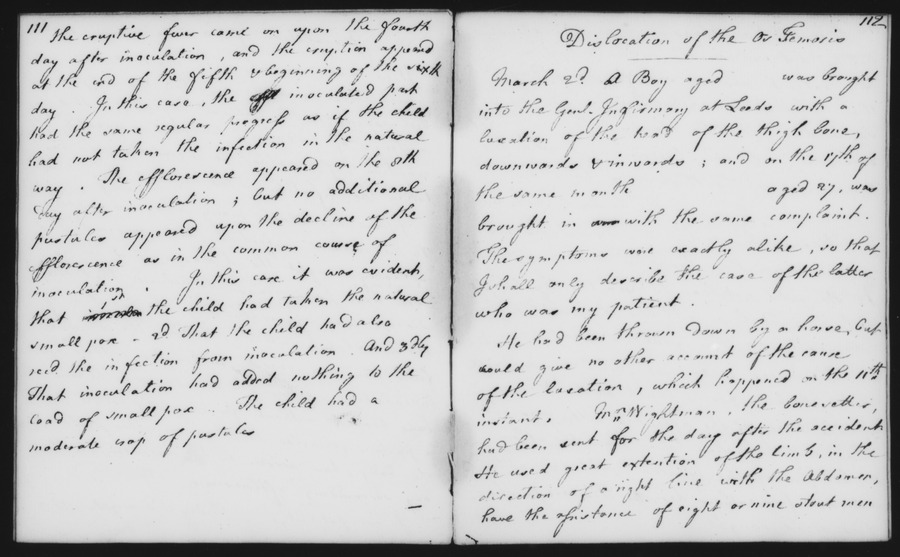 111
The eruptive fever came on upon the fourth
day after inoculation, and the eruption appeared
at the end of the fifth & beginning of the sixth
day. In this case, the inoculated part
had the same regular progress as if the child
had not taken the infection in the natural
way. The efflorescence appeared on the 8th
day after inoculation; but no additional
pustules appeared upon the decline of the
efflorescence as in the common course of
inoculation. In this case it was evident,
that 1st the child had taken the natural
small pox - 2d That the child had also
recd the infection from inoculation. And 3dly
That inoculation had added nothing to the
load of small pox. The child had a
moderate crop of pustules
112
Dislocation of the Os Femoris
March 2d. A Boy aged was brought
into the Genl. Infirmary at Leeds with a
luxation of the head of the thigh bone,
downwards & inwards; and on the 17th of
the same month aged 27, was
brought in with the same complaint.
The symptoms were exactly alike, so that
I shall only describe the case of the latter
who was my patient.
He had been thrown down by a horse, but
could give no other account of the cause
of the luxation, which happened on the 11th
instant. Mr. Wightman, the bonesetter,
had been sent for the day after the accident
He used great extention of the limb, in the
direction of a right line with the Abdomen,
have the assistance of eight or nine stout men